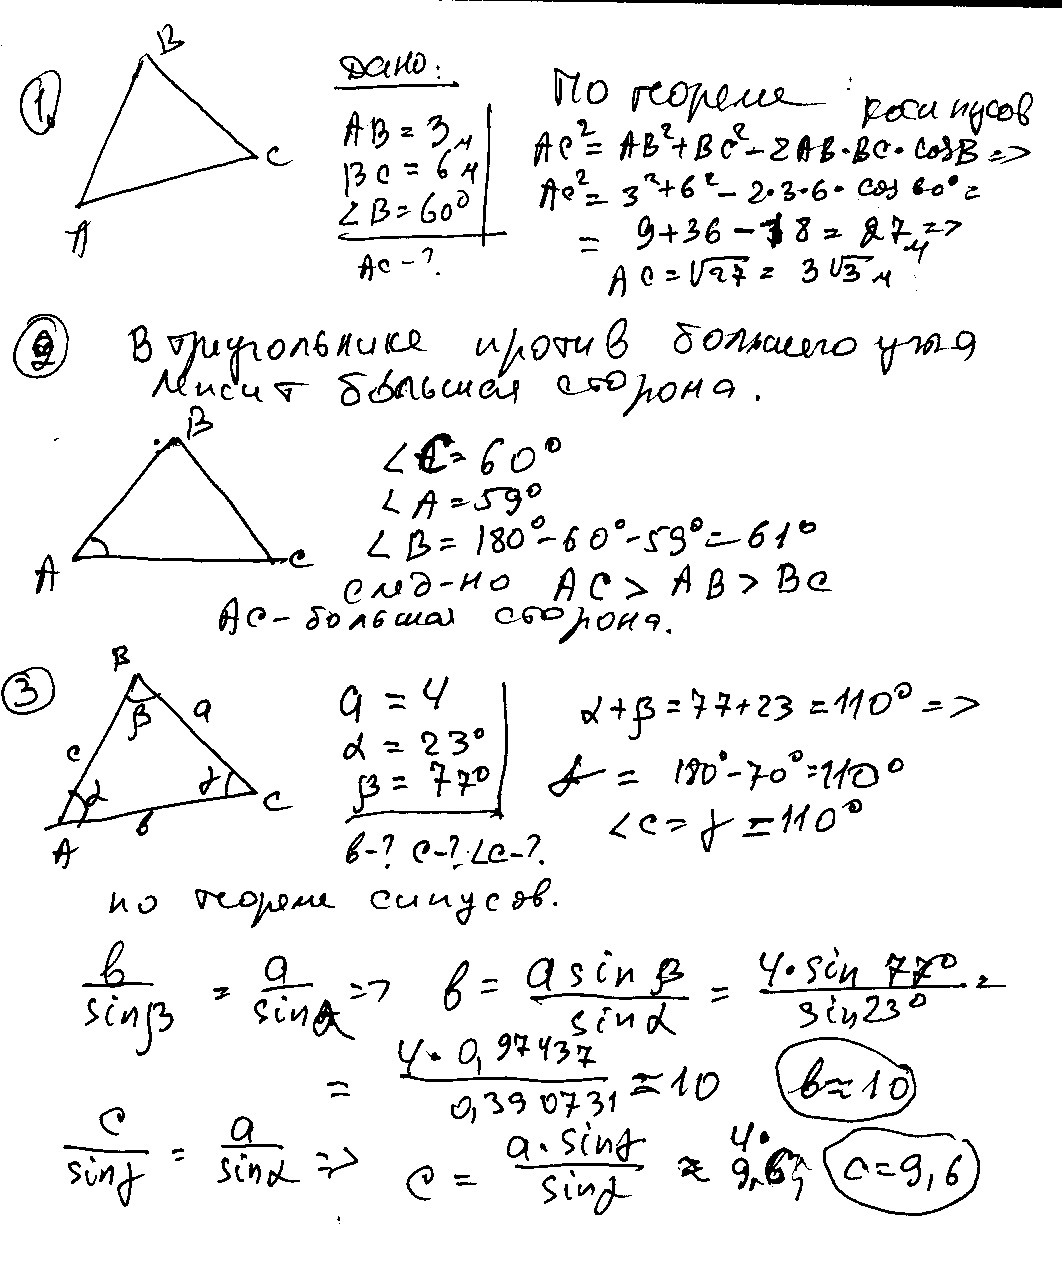 1.
B
A
C
Дано:
AB = 3 м
BC = 6 м
∠B = 60°
AC - ?
По теореме косинусов
AC² = AB² + BC² - 2AB·BC·cosB =>
AC² = 3² + 6² - 2·3·6·cos 60° =
= 9 + 36 - 18 = 27 м =>
AC = √27 = 3√3 м
2
В треугольнике против большего угла
лежит большая сторона.
B
A
C
∠C = 60°
∠A = 59°
∠B = 180° - 60° - 59° = 61°
след-но AC > AB > BC
AC - большая сторона.
3
B
β
a
c
α
γ
C
b
A
a = 4
α = 23°
β = 77°
b - ? c - ? ∠C - ?
α + β = 77 + 23 = 110° =>
γ = 180° - 70° = 110°
∠C = γ = 110°
по теореме синусов.
b/sinβ = a/sinα => b = a sinβ/sinα = 4·sin 77°/sin 23° =
= 4·0,97437/0,390731 ≈ 10 b ≈ 10
c/sinγ = a/sinα => c = a·sinγ/sinα ≈ 9,6 c = 9,6